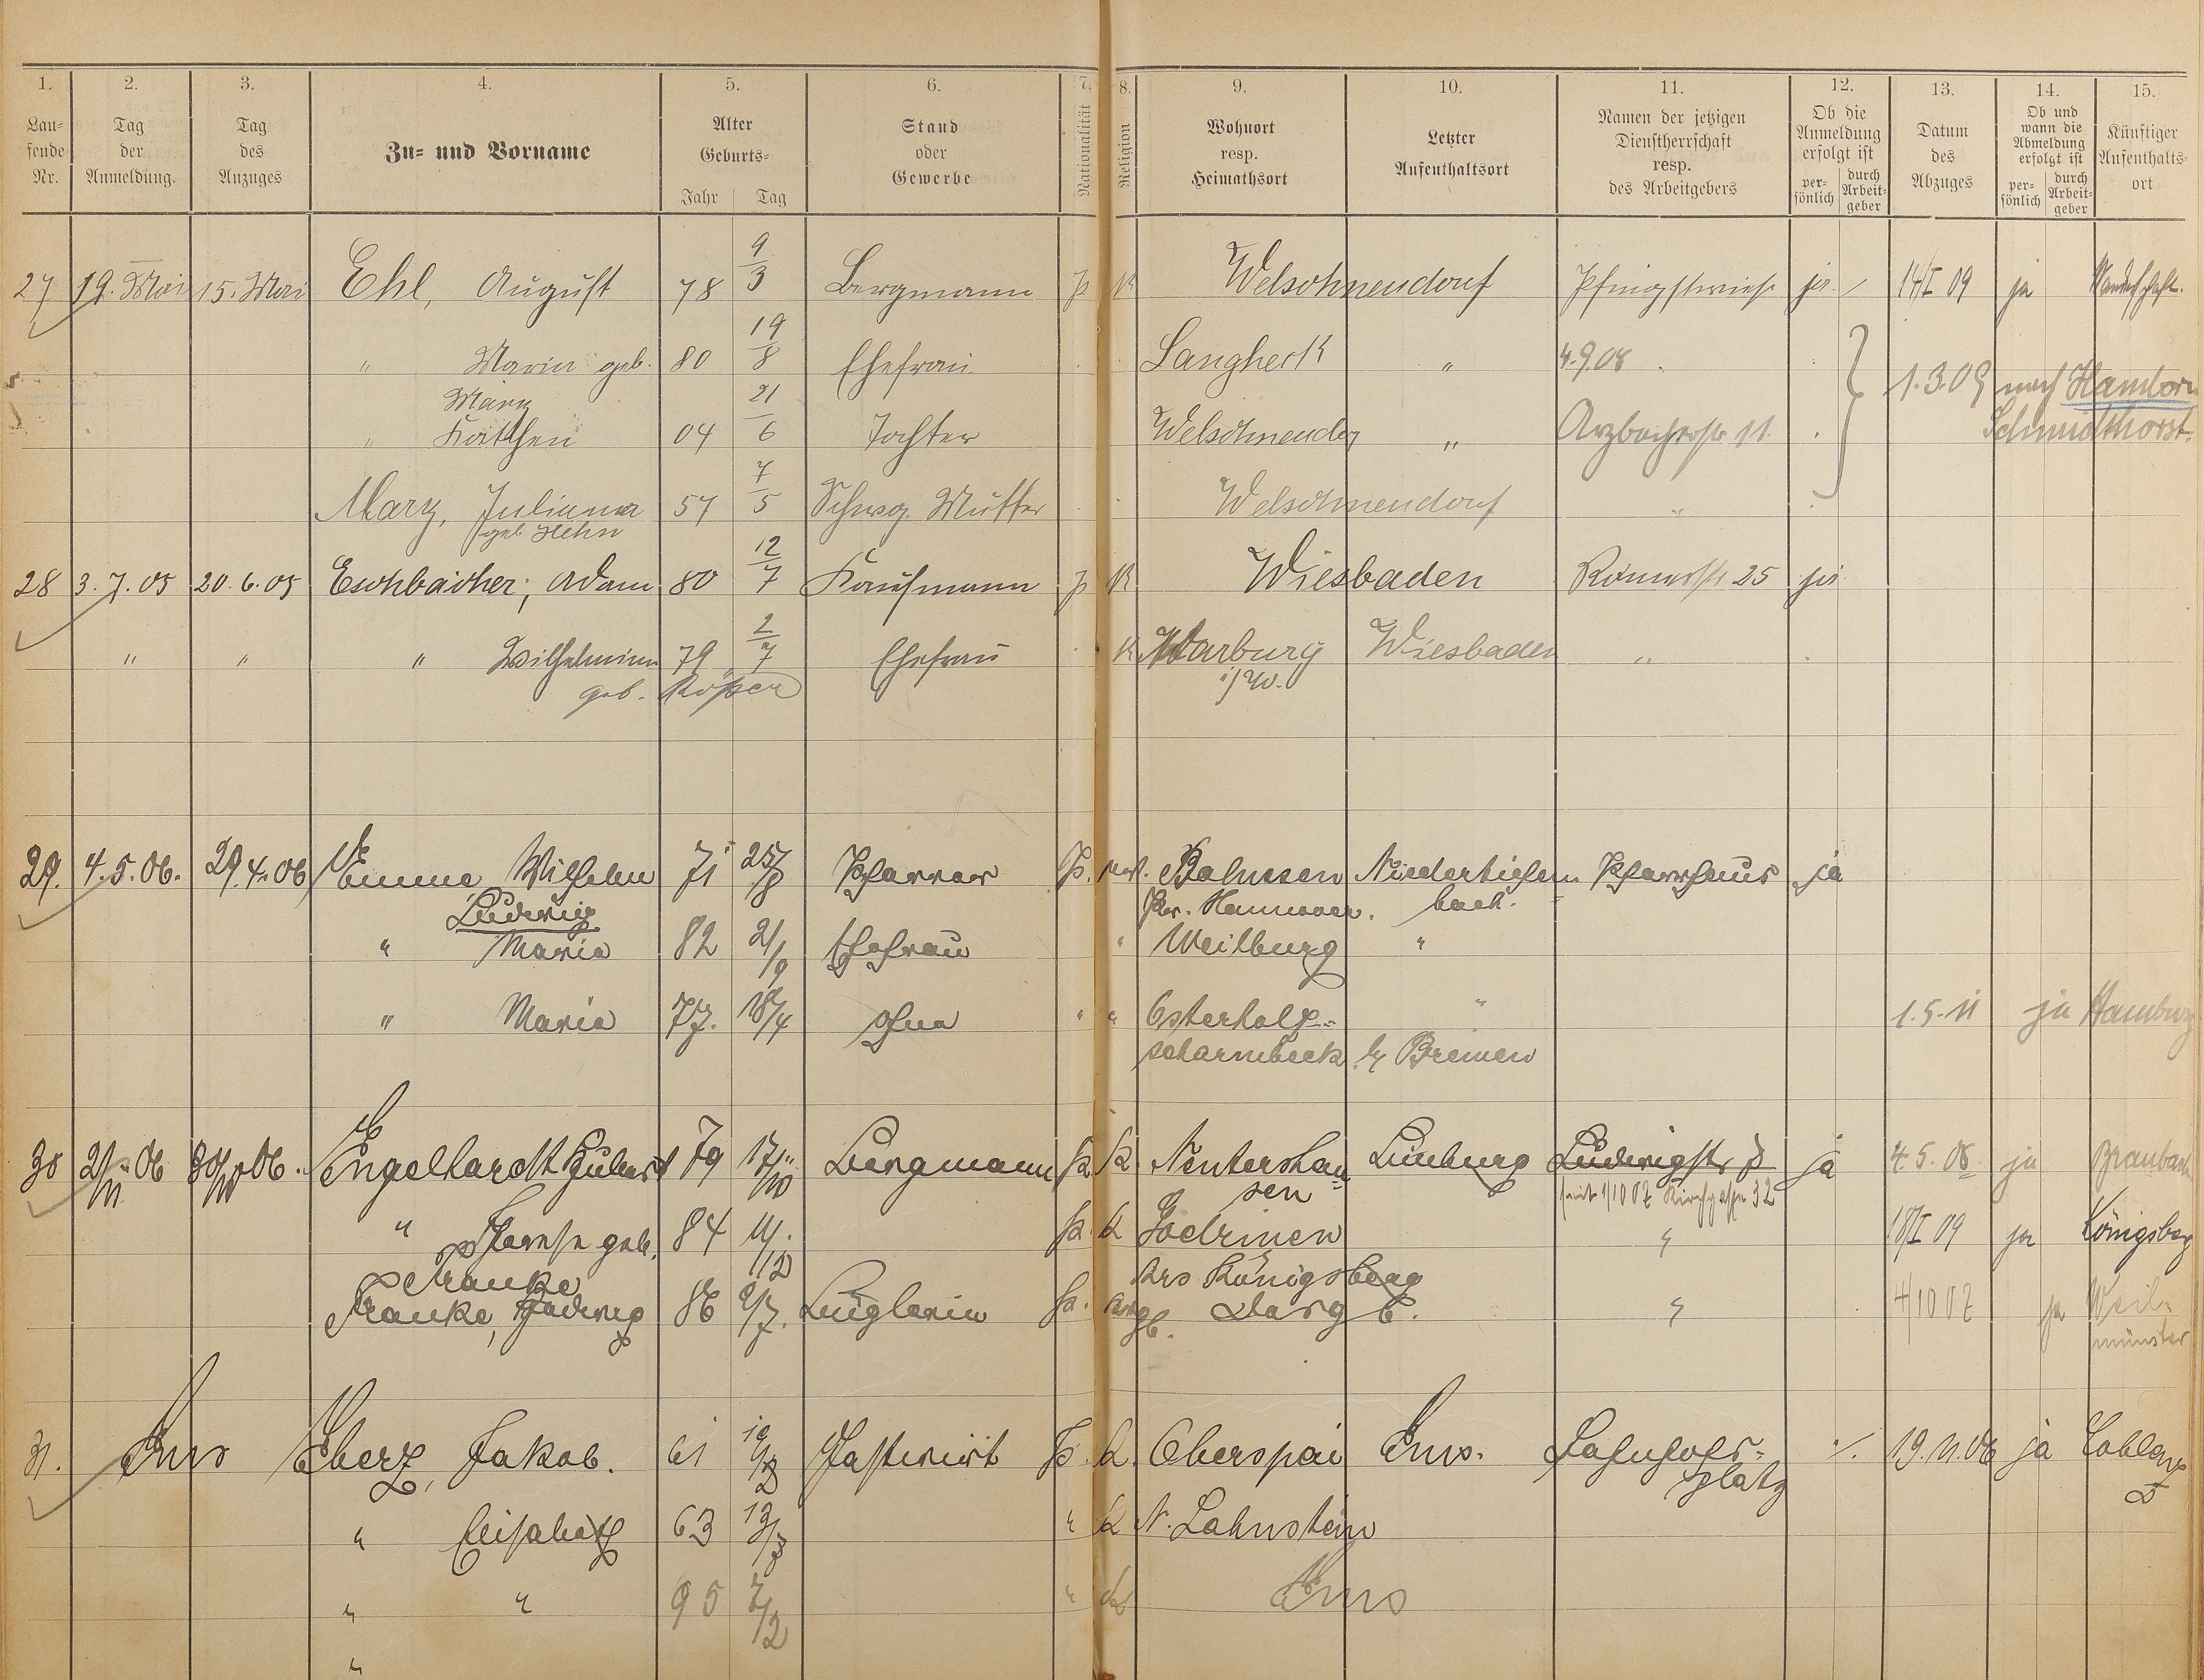 1. 2. 3. 4. 5. 6. 7. 8. 9. 10. 11. 12. 13. 14. 15.
Lau-
fende
Nr.
Tag
der
Anmeldung.
Tag
des
Anzuges
Zu- und Vorname
Alter
Geburts-
Jahr Tag
Stand
oder
Gewerbe
Nationalität
Religion
Wohnort
resp.
Heimathsort
Letzter
Aufenthaltsort
Namen der jetzigen
Dienstherrschaft
resp.
des Arbeitgebers
Ob die
Anmeldung
erfolgt ist
per-
sönlich
durch
Arbeit-
geber
Datum
des
Abzuges
Ob und
wann die
Abmeldung
erfolgt ist
per-
sönlich
durch
Arbeit-
geber
Künftiger
Aufenthalts-
ort
27 19. Mai 15. Mai Ehl, August 78 9/3 Bergmann P K Welschneudorf Pfingstwiese ja 14/I 09 ja
" Maria geb. 80 19/8 Ehefrau Langheck " 4.9.08 1.3.09 nach Hamborn
Marx
" Käthchen 04 21/6 Tochter " Arzbacherstr 11. Schmidthorst.
Marx, Juliana 57 7/5 Schwg. Mutter Welschneudorf "
geb. Hehn
28 3.7.05 20.6.05 Eschbächer, Adam 80 12/7 Kaufmann P K Wiesbaden Römerstr 25 ja
" " " Wilhelmine 79 2/7 Ehefrau K Warburg Wiesbaden "
geb. Röper i/W.
29. 4.5.06. 29.4.06 Emme Wilhelm 71 25/8 Pfarrer P. Niedertiefen- Pfarrhaus ja
Ludwig Pr. Hannover. bach.
" Maria 82 21/9 Ehefrau " Weilburg "
" Maria 77. 18/4 ohne " " Osterholz- " 1.5.11 ja Hamburg
scharmbeck b/ Bremen
30 21/11 06 30/10 06. Engelhardt Hubert 79 17/10 Bergmann P K Nentershau- Limburg Ludwigstr 8 ja 4.5.08 ja Braubach
sen seit 1/10 07 Kirchgasse 32
" Therese geb. 84 11/12 P. K Godrinen " 18/I 09 ja Königsberg
Franke Krs Königsberg
Franke, Hedwig 86 9/7. Büglerin P. evgl. " 4/10 07 ja Weil-
münster
31. Ems Eberz, Jakob. 61 Gastwirt P. K. Oberspai Ems. Bahnhofs- ./. 19.11.06 ja Coblenz
platz
" Elisabeth 63 13/3 " K N. Lahnstein
" " 95 7/2 " K Ems
"